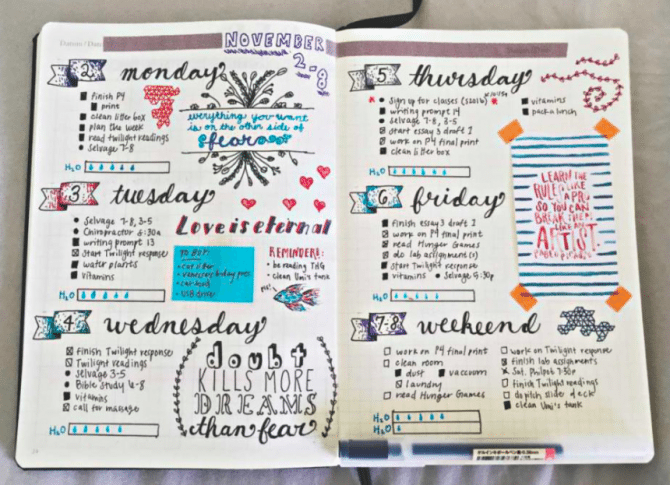 NOVEMBER
2-8
2 monday
finish P4
print
clean litter box
plan the week
read twilight readings
Selvage 7-8
H2O
everything you want
is on the other side of
fear
3 tuesday
Selvage 7-8, 3-5
Chiropractor 6:30a
writing prompt 13
Start Twilight response
water plants
vitamins
H2O
Love is eternal
TO BUY:
cat litter
USB drive
REMINDERS:
be reading THG
clean Umi's tank
4 wednesday
Finish Twilight response
Twilight readings
Selvage 3-5
Bible Study 6-8
vitamins
call for massage
H2O
H2O
doubt
KILLS MORE
DREAMS
than fear
5 thursday
Sign up for classes
writing prompt 14
Selvage 7-8, 3-5
start essay 3 draft 1
work on P4 final print
clean litter box
vitamins
pack lunch
H2O
LEARN THE
RULES LIKE
A PRO
SO YOU CAN
BREAK THEM
LIKE AN
ARTIST.
PABLO PICASSO
6 friday
finish essay 3 draft 1
work on P4 final print
read Hunger Games
do lab assignment(s)
Start Twilight response
vitamins Selvage 4:30p
H2O
7-8 weekend
work on P4 final print
clean room
dust vacuum
laundry
read Hunger Games
work on Twilight response
finish lab assignments
finish Twilight readings
polish slide deck
clean Umi's tank
H2O
H2O